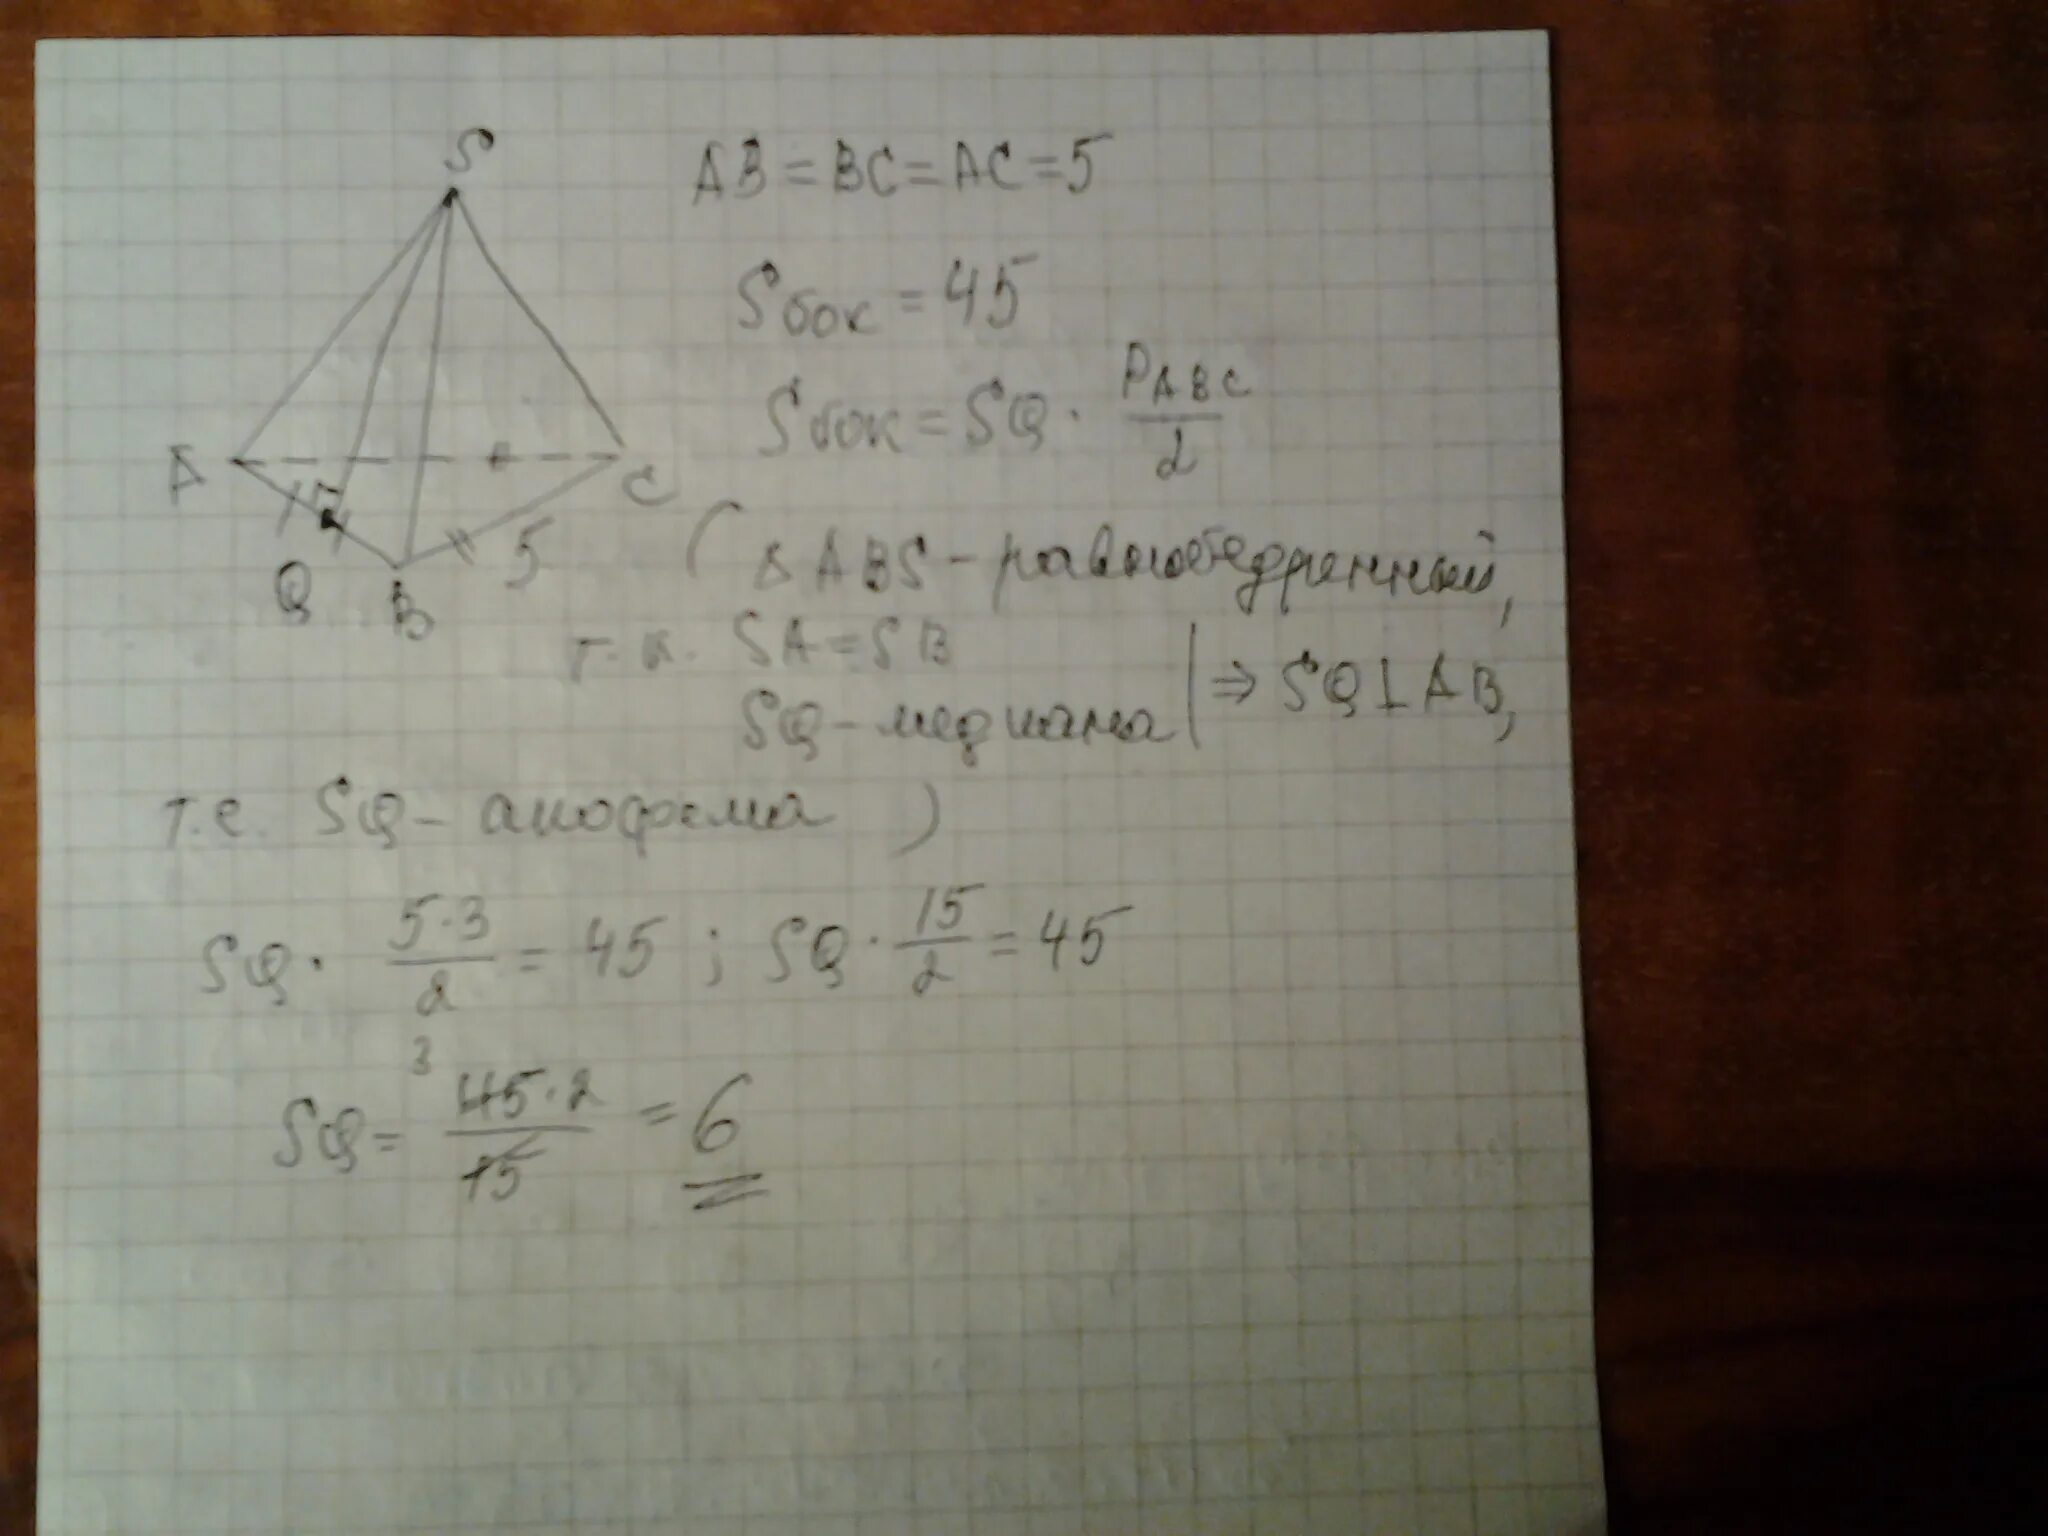 S
A
Q
B
C
5
AB = BC = AC = 5
Sбок = 45
Sбок = SQ · P ABC / 2
( Δ ABS – равнобедренный,
т.к. SA = SB
SQ – медиана | ⇒ SQ ⊥ AB,
т.е. SQ – апофема )
SQ · 5·3 / 2 = 45 ; SQ · 15 / 2 = 45
3
SQ = 45·2 / 15 = 6